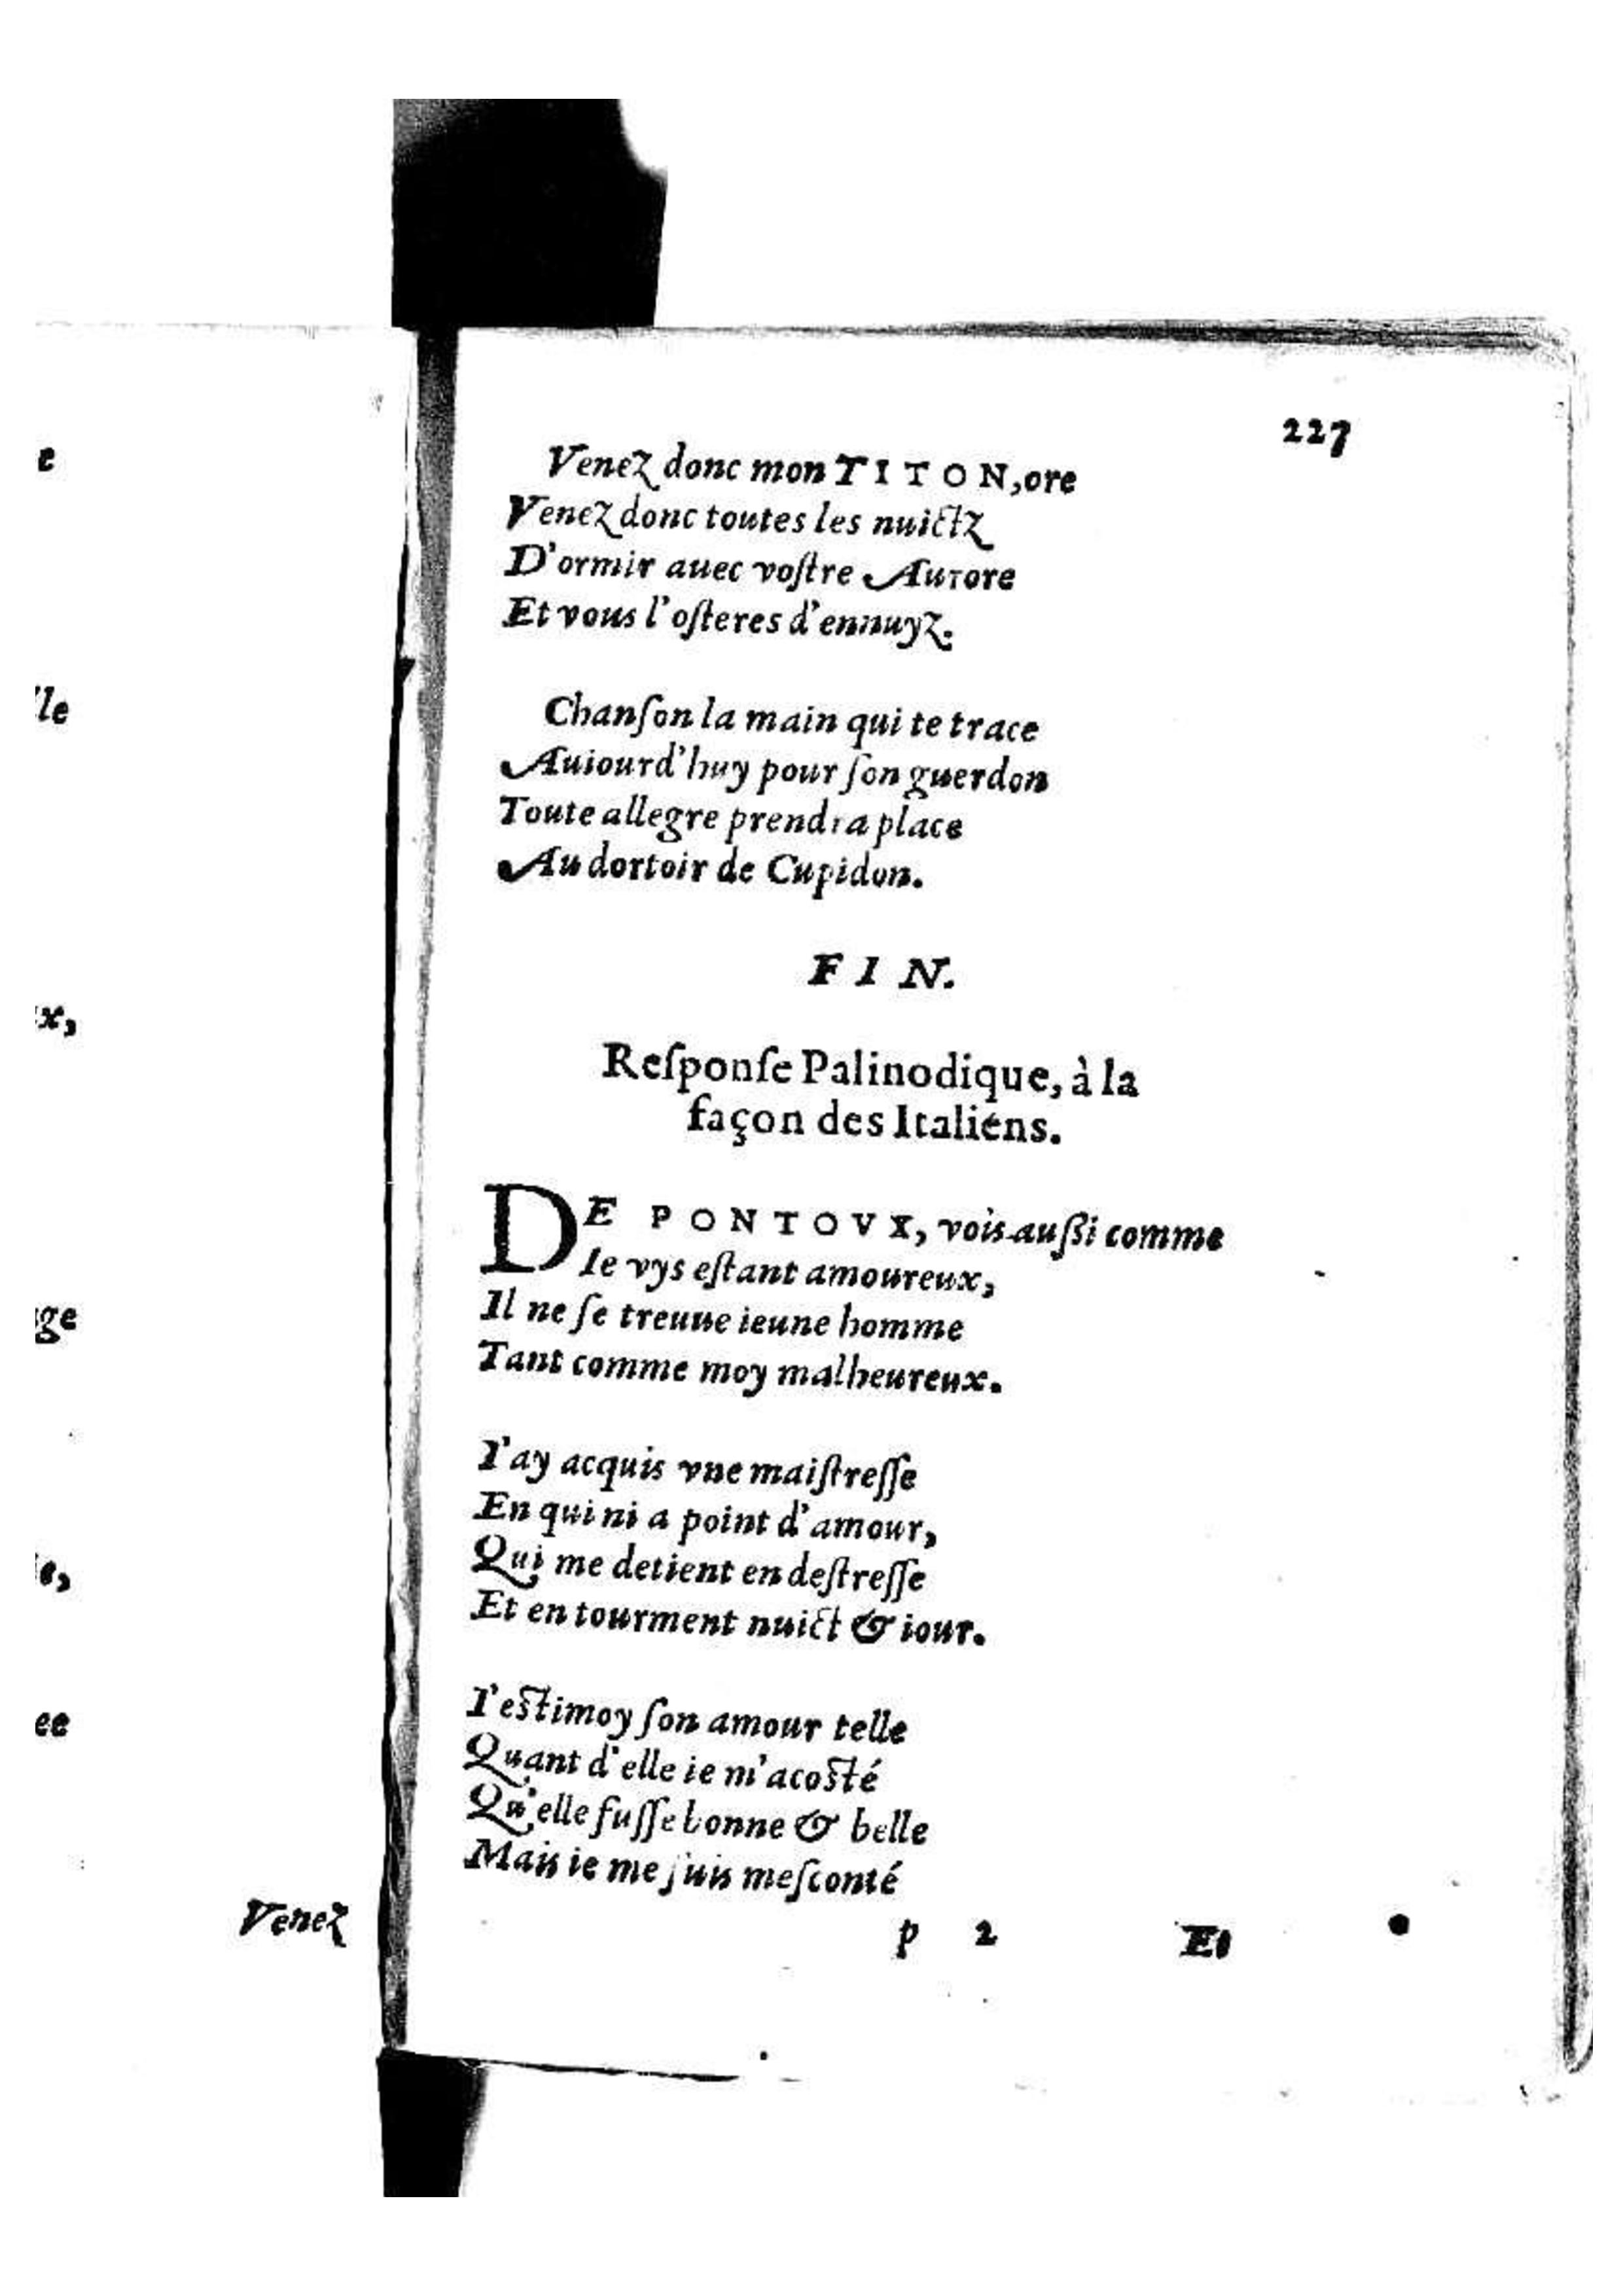 227
Venez donc mon TITON, ore
Venez donc toutes les nuictz
D'ormir auec voſtre Aurore
Et vous l'oſteres d'ennuyz.
Chanſon la main qui te trace
Auiourd'huy pour ſon guerdon
Toute allegre prendra place
Au dortoir de Cupidon.
FIN.
Reſponſe Palinodique, à la
façon des Italiens.
DE PONTOVX, vois auſſi comme
Ie vys eſtant amoureux,
Il ne ſe treuue ieune homme
Tant comme moy malheureux.
I'ay acquis vne maiſtreſſe
En qui ni a point d'amour,
Qui me detient en deſtreſſe
Et en tourment nuict & iour.
I'eſtimoy ſon amour telle
Quant d'elle ie m'acoſté
Qu'elle fuſſe bonne & belle
Mais ie me ſuis meſconté
p 2 Et
e
lle
x,
ge
e,
ee
Venez